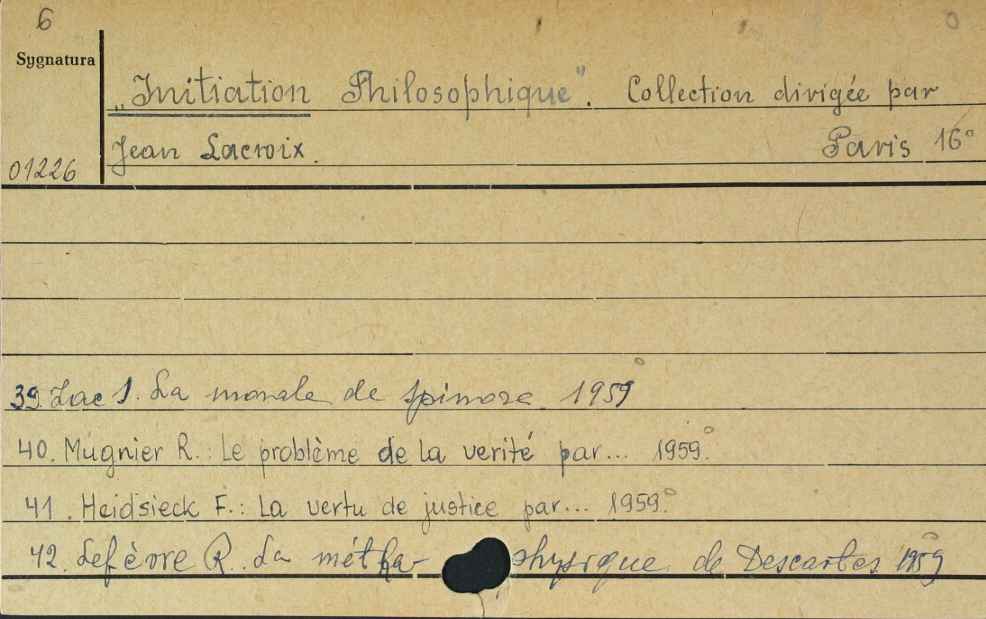 6
Sygnatura
„Initiation Philosophique". Collection dirigée par
Jean Lacroix. Paris 16°
01226
39. Lac J. La morale de Spinoza 1959°
40. Mugnier R.: Le problème de la verité par... 1959°
41. Heidsieck F.: La vertu de justice par... 1959°
42. Lefèvre R. La métha-physique de Descartes 1959°